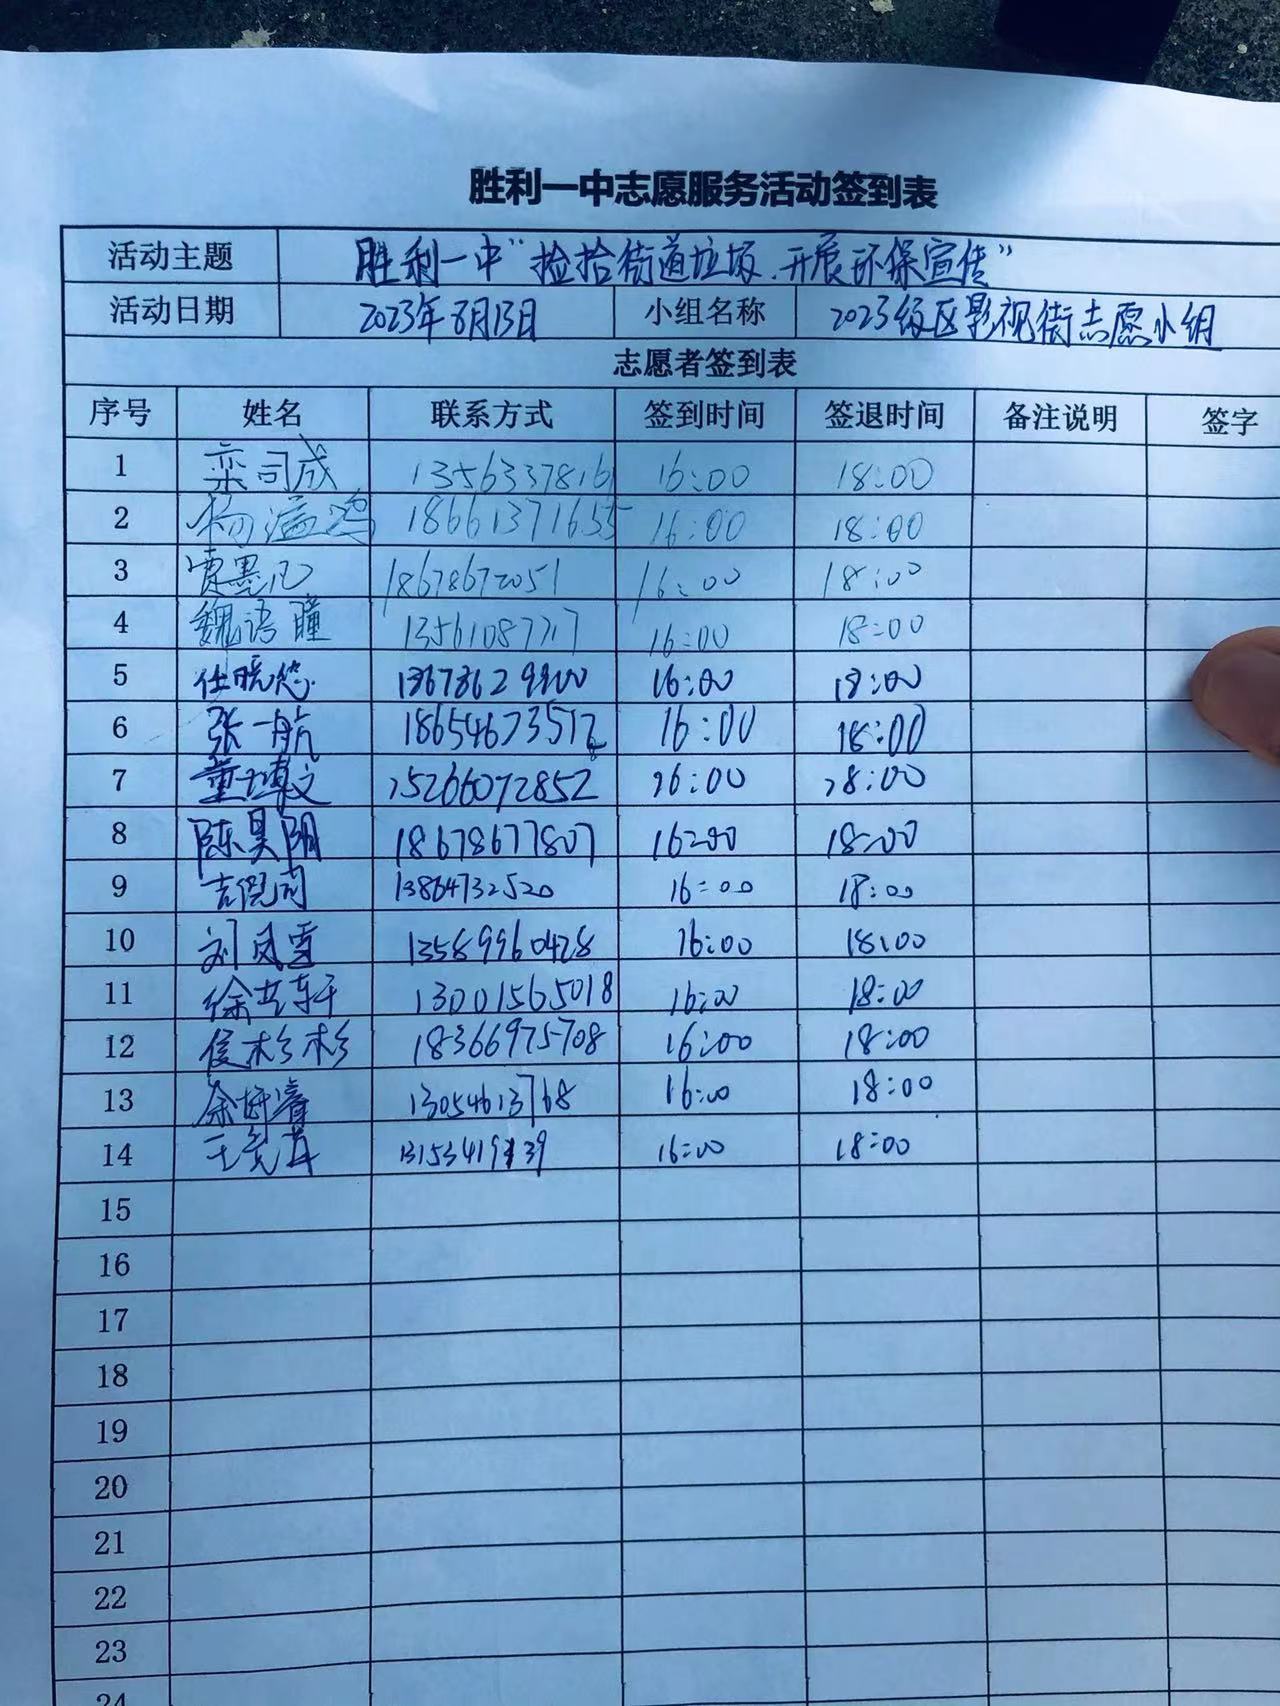 胜利一中志愿服务活动签到表
活动主题 胜利一中"捡拾街道垃圾、开展环保宣传"
活动日期 2023年8月13日 小组名称 2023级区影视街志愿小组
志愿者签到表
序号 姓名 联系方式 签到时间 签退时间 备注说明 签字
1 栾司成 1356337816 16:00 18:00
2 杨溢鸿 18661371655 16:00 18:00
3 贾墨 18678672051 16:00 18:00
4 魏语瞳 16:00 18:00
5 任晓悠 16:00 18:00
6 张一航 18654673512 16:00 18:00
7 董博文 15266072852 16:00 18:00
8 陈昊阴 18678677807 16:00 18:00
9 吉 13864732520 16:00 18:00
10 刘凤雪 13589960428 16:00 18:00
11 徐艺轩 13001565018 16:00 18:00
12 侯杉杉 18366975708 16:00 18:00
13 余妍睿 13054613768 16:00 18:00
14 王 16:00 18:00
15
16
17
18
19
20
21
22
23
24